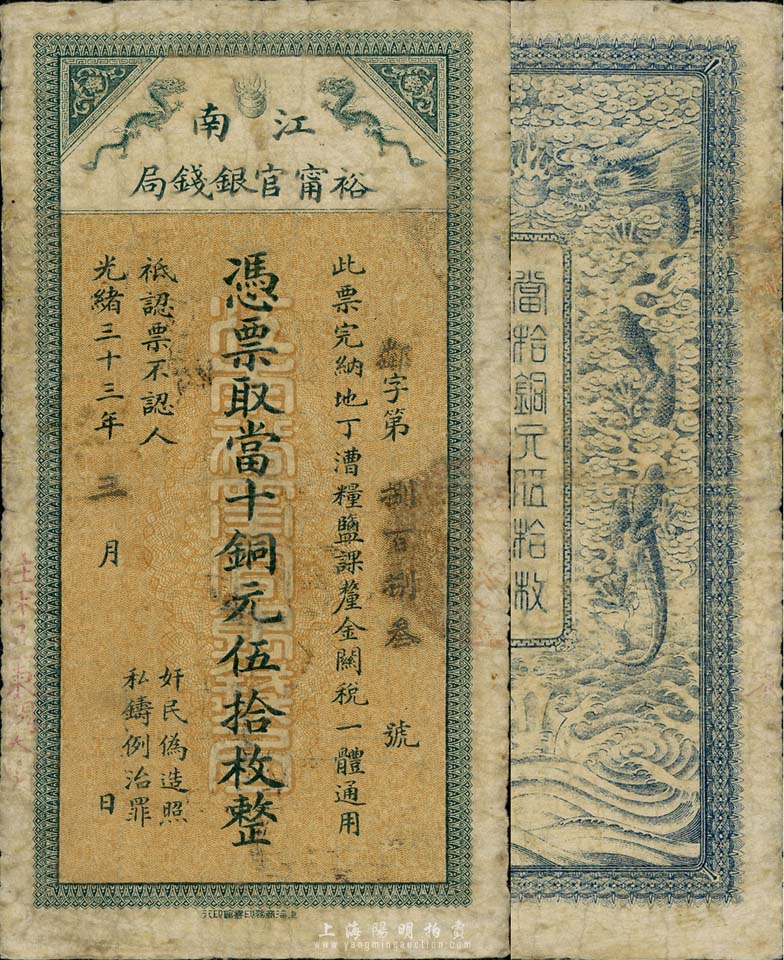 江南
裕甯官銀錢局
字第捌百捌叁號
此票完納地丁漕糧鹽課釐金關稅一體通用
憑票取當十銅元伍拾枚整
祗認票不認人
光緒三十三年三月日
奸民偽造照
私鑄例治罪
上海商務印書館印行
當拾銅元伍拾枚
上海陽明拍賣
www.yangmingauction.com